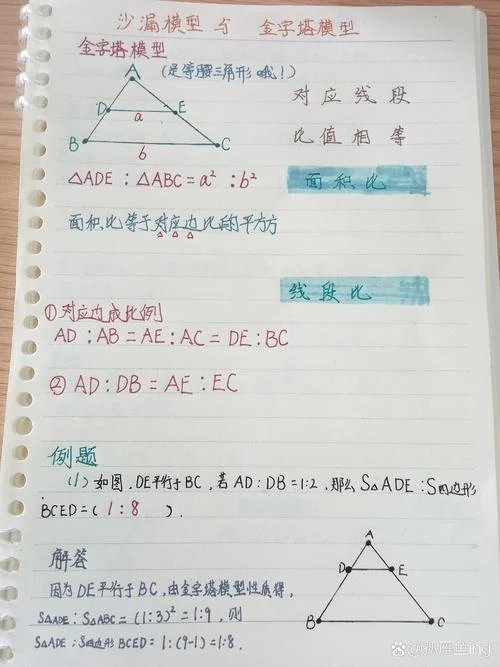 沙漏模型与 金字塔模型
金字塔模型
(是等腰三角形哦!)
A
D E
a
B C
b
对应线段
比值相等
△ADE:△ABC=a²:b²
面积比
面积比等于对应边比的平方方
△ △ △
线段比
①对应边成比例
AD:AB=AE:AC=DE:BC
②AD:DB=AE:EC
例题
(1)如图,DE平行于BC,若AD:DB=1:2,那么S△ADE:S四边形
BCED=(1:8).
解答
因为DE平行于BC,由金字塔模型性质得,
S△ADE:S△ABC=(1:3)²=1:9,则
S△ADE:S四边形BCED=1:(9-1)=1:8.
A
D E
B C
@孤雁鱼ing